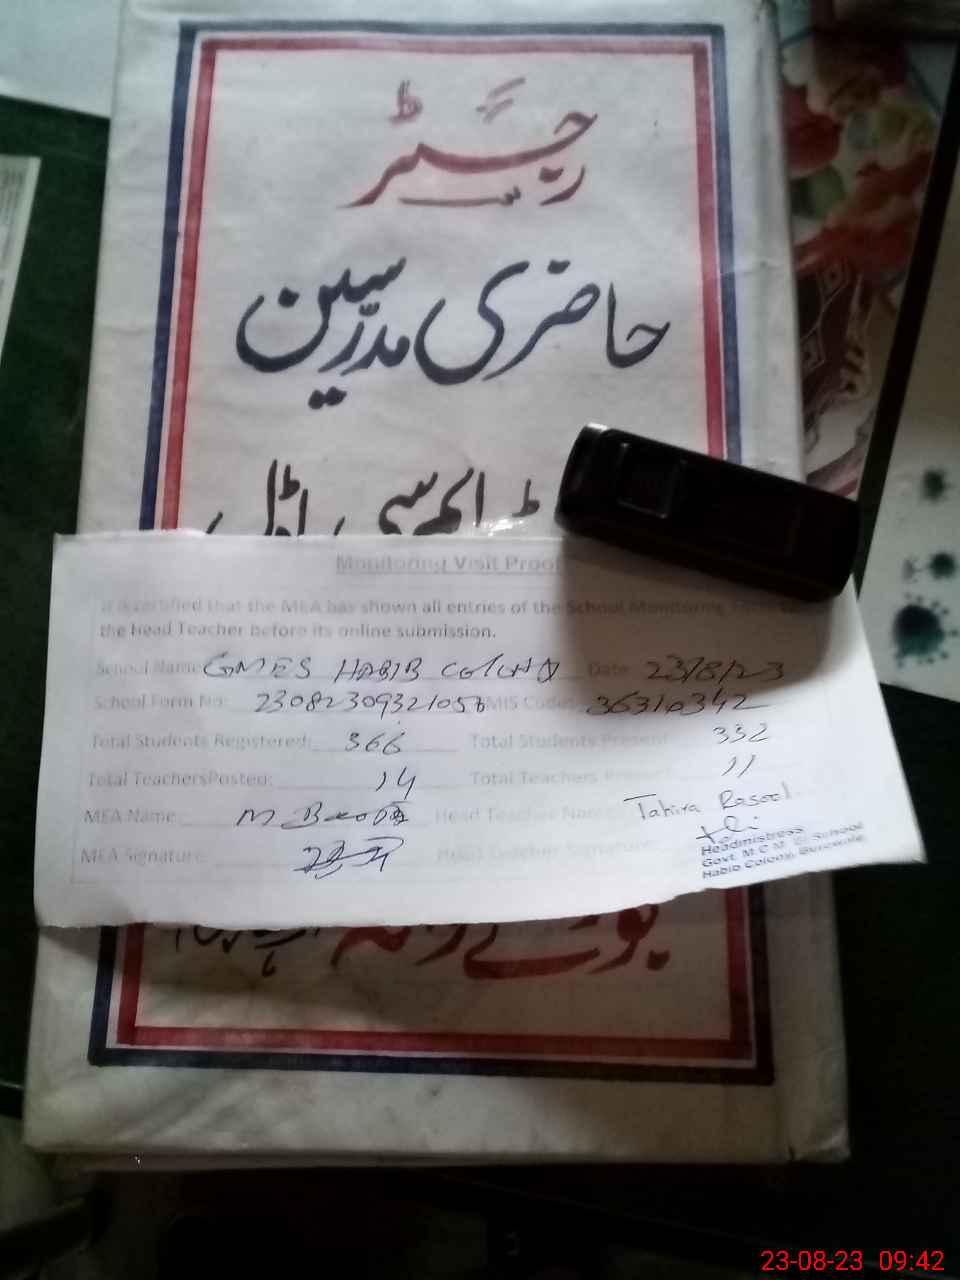 رجسٹر
حاضری مدرسین
Monitoring Visit Proof
It is certified that the MEA has shown all entries of the School Monitoring Form to
the Head Teacher before its online submission.
School Name GMES HABIB COLONY Date 23/8/23
School Form No: 23082309321056 EMIS Code: 36310342
Total Students Registered: 366 Total Students Present 332
Total TeachersPosted: 14 Total Teachers Present 11
MEA Name: M Head Teacher Name: Tahira Rasool
MEA Signature: Head Teacher Signature:
Headmistress
Govt. M.C M. E. School
Habib Colony, Burewala
23-08-23 09:42